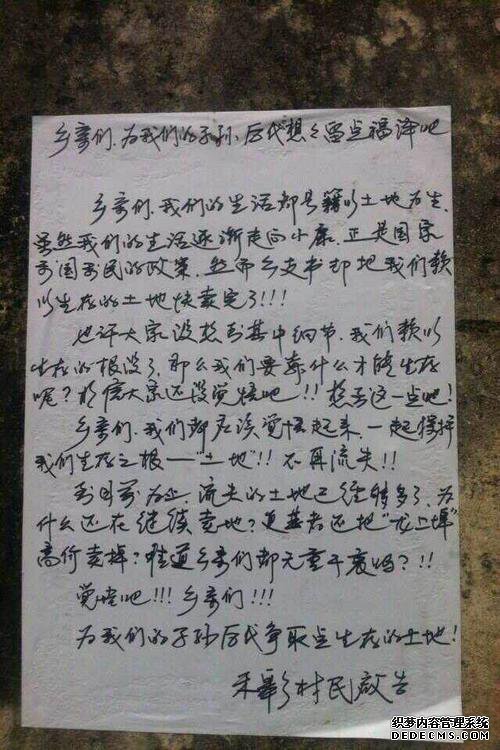 乡亲们、为我们的子孙、后代想想留点福泽吧
乡亲们、我们的生活都是籍以土地为生、
虽然我们的生活逐渐走向小康、正是国家
利国利民的政策、然而乡支书却把我们赖
以生存的土地快卖完了!!!
也许大家没想到其中细节、我们赖以
生存的根没了、那么我们要靠什么才能生存
呢?可能大家还没觉悟吧!!想想这一点吧!
乡亲们、我们都应该觉悟起来、一起保护
我们生存之根一"土地"!!不再流失!!
到目前为止、流失的土地已经够多了、为
什么还在继续卖地?更甚者还把"龙上埔"
高价卖掉?难道乡亲们都无动于衷吗?!!
觉悟吧!!!乡亲们!!!
为我们的子孙后代争取点生存的土地!
乡村民敬告
织梦内容管理系统
DEDECMS.COM